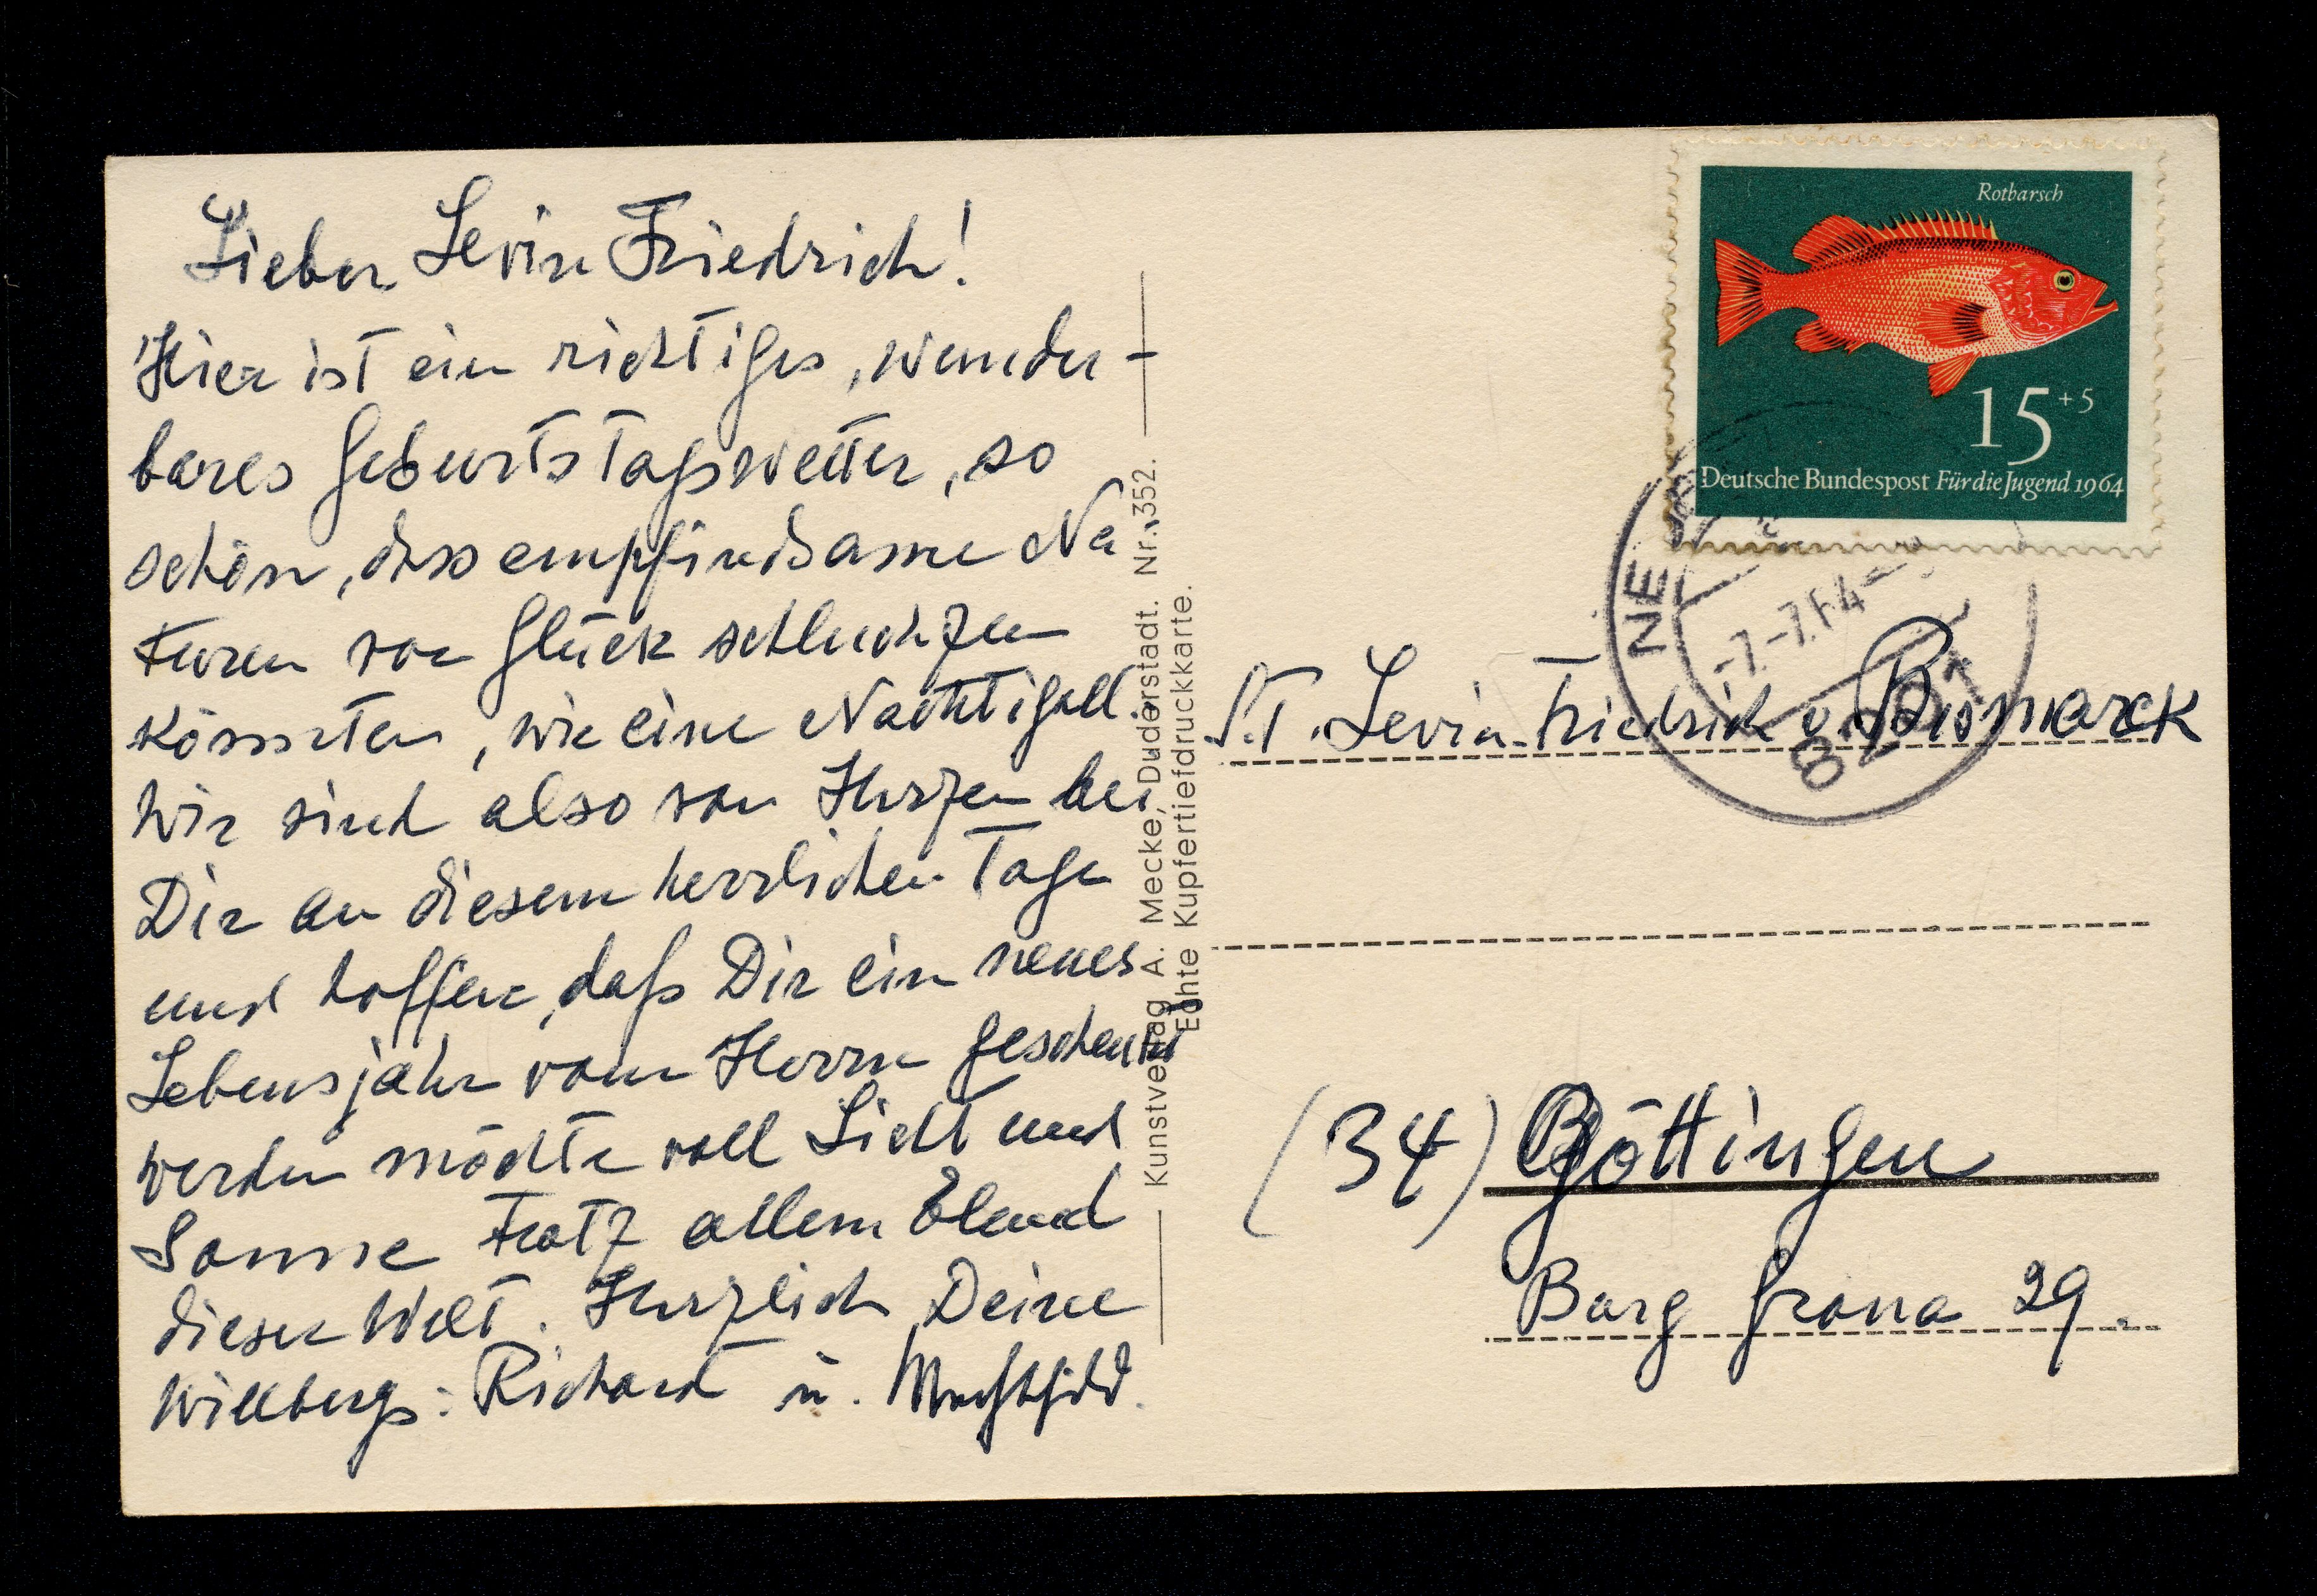 Lieber Levin Friedrich!
Hier ist ein richtiges, wunder-
bares Geburtstagswetter, so
schön, dass empfindsame Na
turen vor Glück schluchzen
könnten, wie eine Nachtigall.
Wir sind also von Herzen bei
Dir an diesem herrlichen Tage
und hoffen, daß Dir ein neues
Lebensjahr vom Herrn geschenkt
werden möchte voll Licht und
Sonne trotz allem Elend
dieser Welt. Herzlich, Deine
Willbergs: Richard u.
Kunstverlag A. Mecke, Duderstadt. Nr. 352.
Echte Kupfertiefdruckkarte.
Rotbarsch
15 +5
Deutsche Bundespost Für die Jugend 1964
NE
-7.-7.64-
S.T. Levin-Friedrich v. Bismarck
(34) Göttingen
Burg Grona 29.